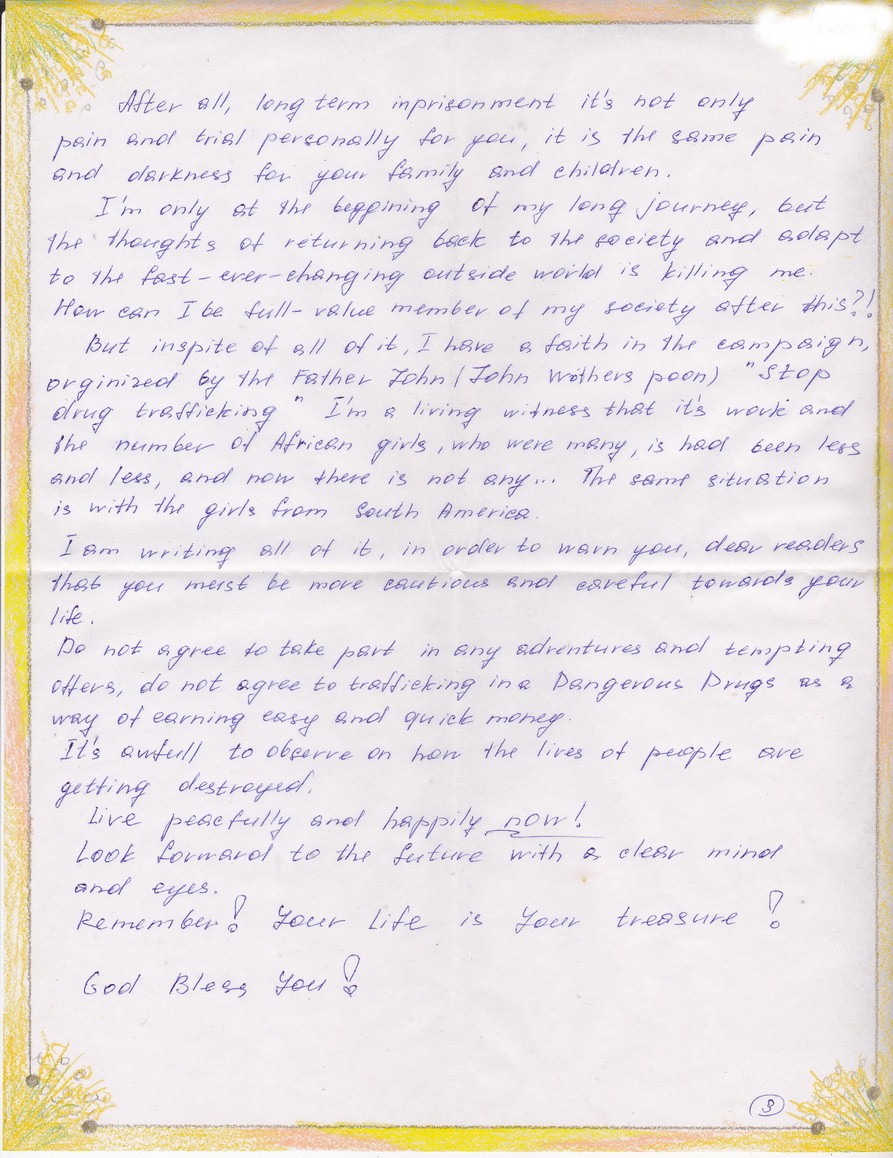 After all, long term inprisonment it's not only
pain and trial personally for you, it is the same pain
and darkness for your family and children.
I'm only at the beggining of my long journey, but
the thoughts of returning back to the society and adapt
to the fast-ever-changing outside world is killing me.
How can I be full-value member of my society after this?!
But inspite of all of it, I have a faith in the campaign,
orginized by the Father John (John Wothers poon) "Stop
drug trafficking" I'm a living witness that it's work and
the number of African girls, who were many, is had been less
and less, and now there is not any... The same situation
is with the girls from South America.
I am writing all of it, in order to warn you, dear readers
that you must be more cautious and careful towards your
life.
Do not agree to take part in any adventures and tempting
offers, do not agree to trafficking in a Dangerous Drugs as a
way of earning easy and quick money.
It's awfull to observe on how the lives of people are
getting destroyed.
Live peacfully and happily now!
Look forward to the future with a clear mind
and eyes.
Remember! Your Life is Your treasure!
God Bless You!
3